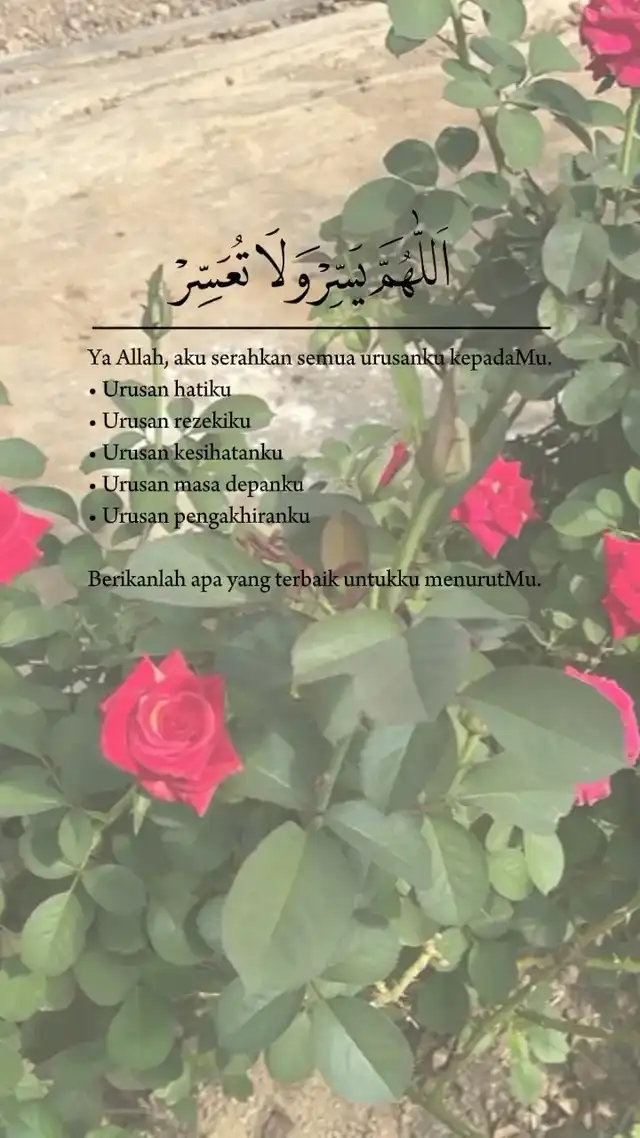 اَللّٰهُمَّ يَسِّرْ وَلَا تُعَسِّرْ
Ya Allah, aku serahkan semua urusanku kepadaMu.
• Urusan hatiku
• Urusan rezekiku
• Urusan kesihatanku
• Urusan masa depanku
• Urusan pengakhiranku
Berikanlah apa yang terbaik untukku menurutMu.